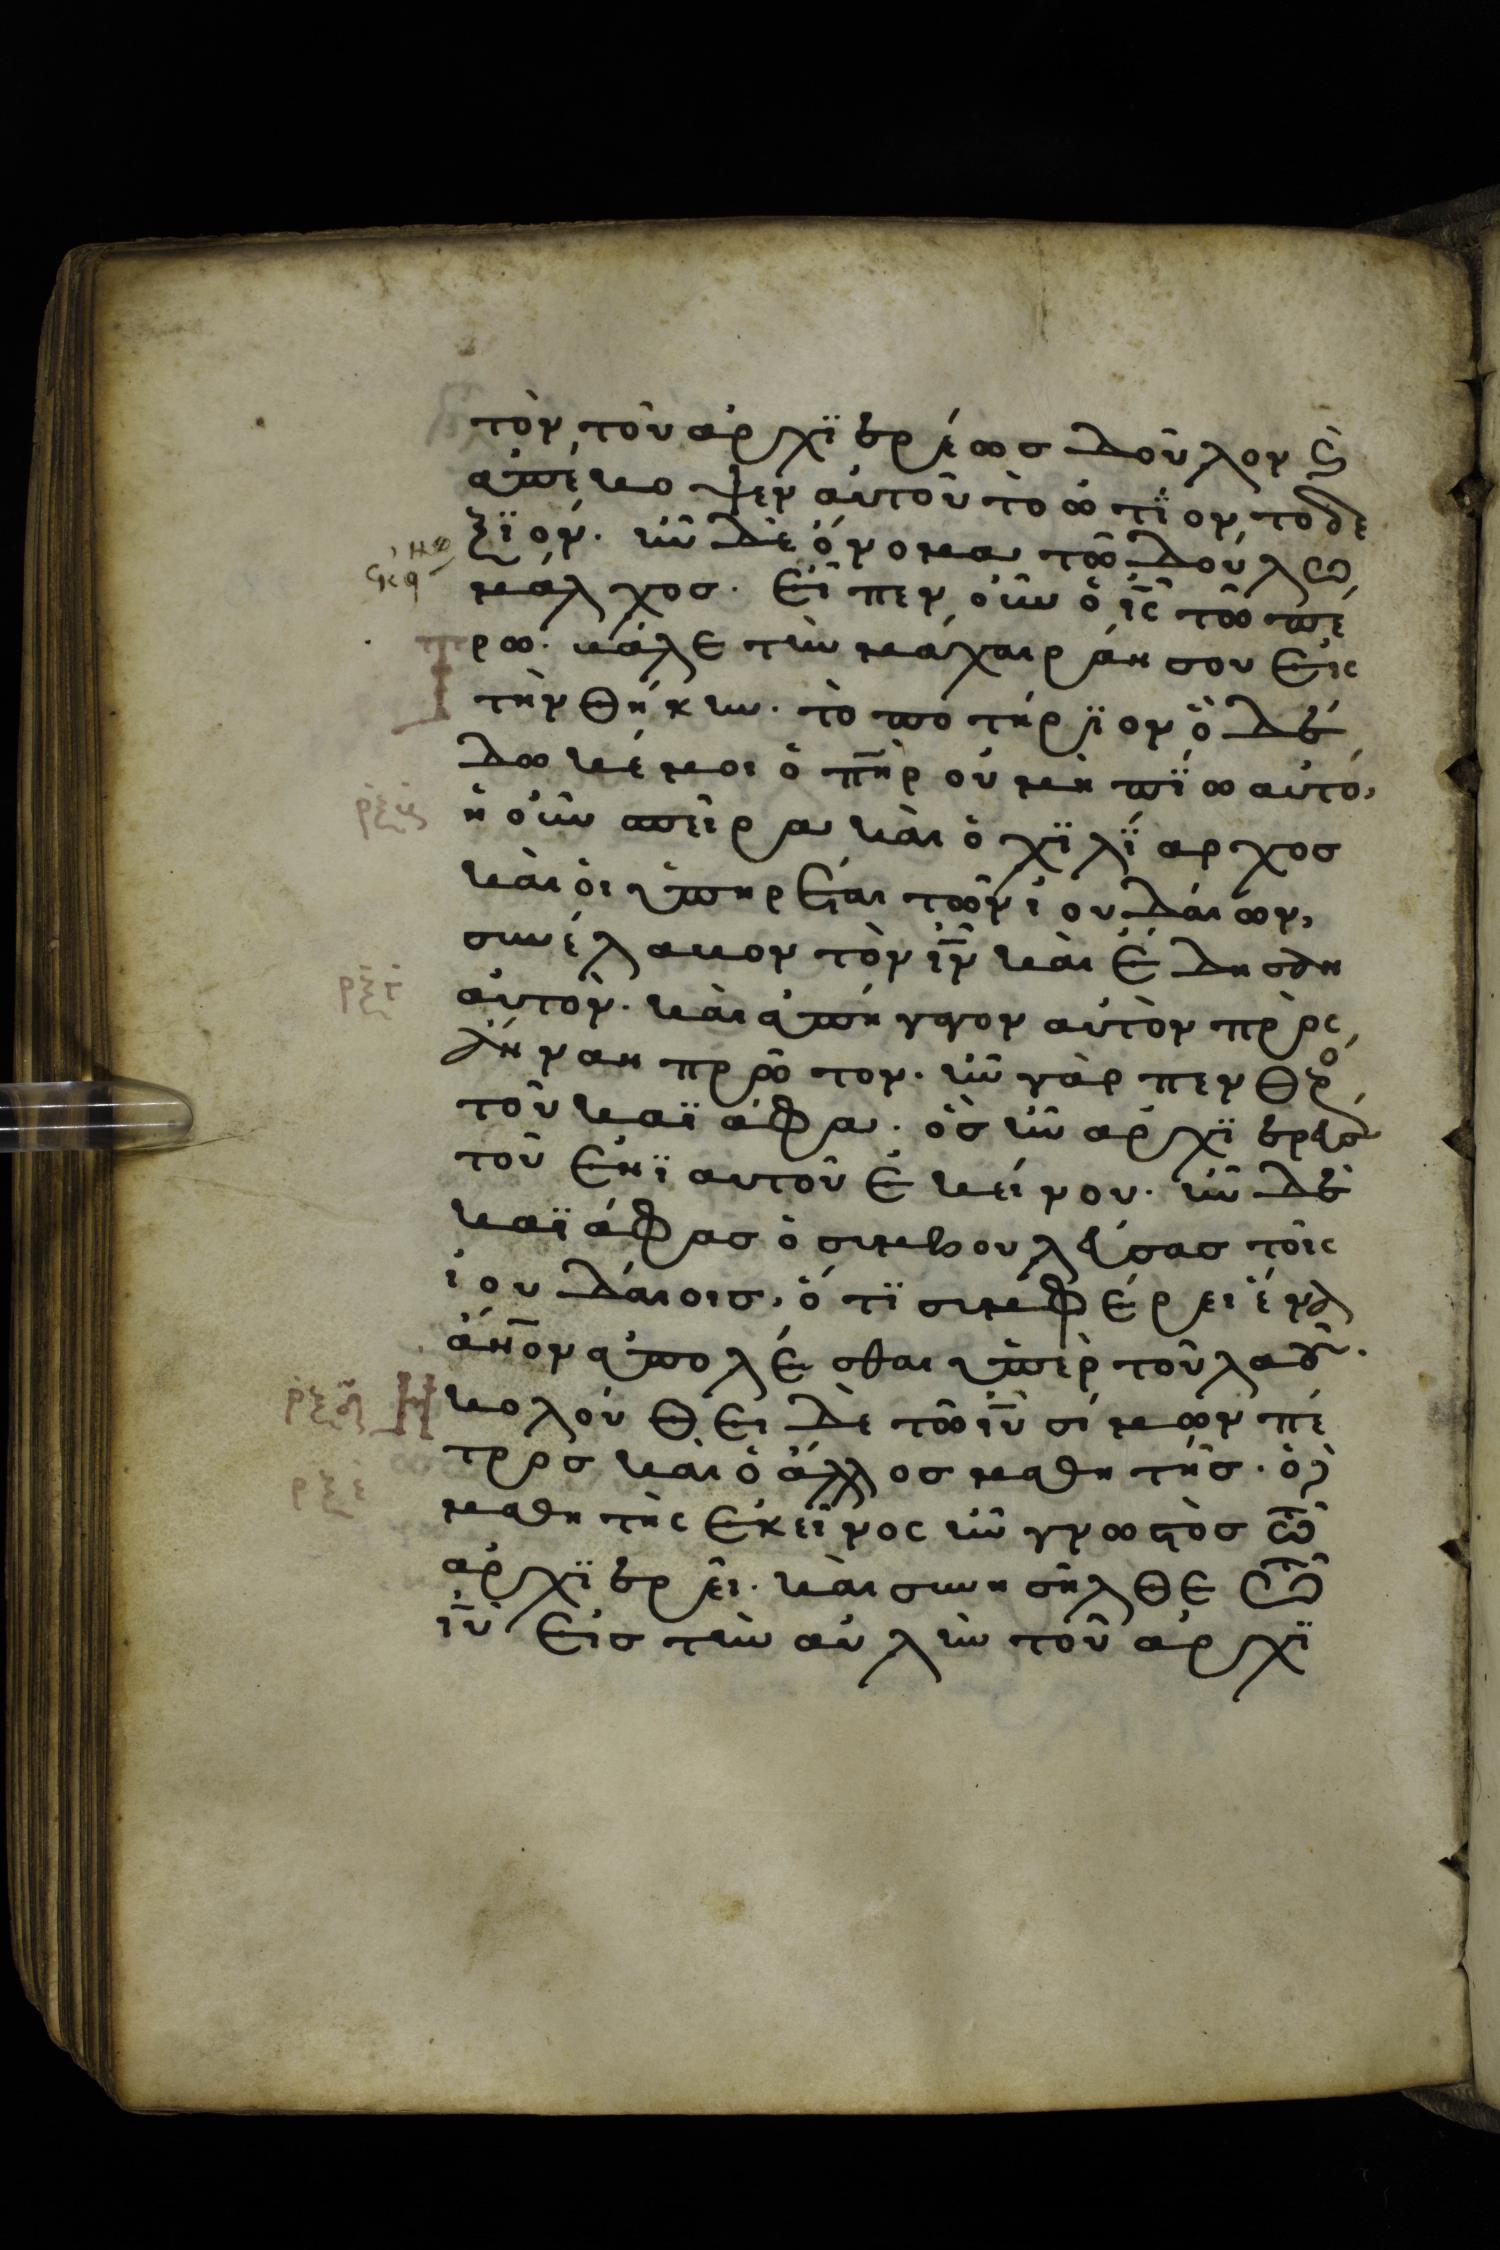 τὸν τοῦ ἀρχϊερέωσ δοῦλον ϗ
ἀπέκοψεν ἀυτοῦ τὸ ὠτΐον τὸ δε
ξϊόν. ἦν δὲ ὄνομα τῶ δούλω
μάλχοσ. Εἶπεν οὖν ὁ ι̅ς̅ τῶ πέ
ρω. κάλε τὴν μάχαιράν σου εἰς
τὴν θήκην. τὸ ποτήρϊον ὃ δέ
δωκέ μοι ὁ π̅η̅ρ̅ οὐ μὴ πΐω αυτό,
ἡ οὖν σπεῖρα καὶ ὁ χϊλΐαρχοσ
καὶ ὁι ὑπηρέται τῶν ἰουδάιων,
συνέλαβον τὸν ι̅ν̅ καὶ ἔδησαν
ἀυτον. καὶ ἀπήγαγον αὐτὸν πρὸς
ἄνναν πρῶτον. ἦν γὰρ πενθερὸ
τοῦ καϊάφα. ὃσ ἦν ἀρχϊερεὺσ
τοῦ ἐνϊαυτοῦ ἐκείνου. ἦν δὲ
καϊάφασ ὁ συμβουλεύσασ τοῖς
ἰουδάιοισ, ὅτϊ συμφέρει ἕνα
ἄν̅ο̅ν ἀπολέσθαι ὑπὲρ τοῦ λαοῦ.
Ηκολούθει δὲ τῶ ι̅υ̅ σίμων πέ
τροσ καὶ ὁ ἄλλοσ μαθητὴσ. ὁ δὲ
μαθητὴς ἐκεῖνος ἦν γνωστὸσ τῶ
ἀρχϊερεῖ. καὶ συνησῆλθε τῶ
ι̅υ̅ εἰσ τὴν ἀυλὴν τοῦ ἀρχϊ